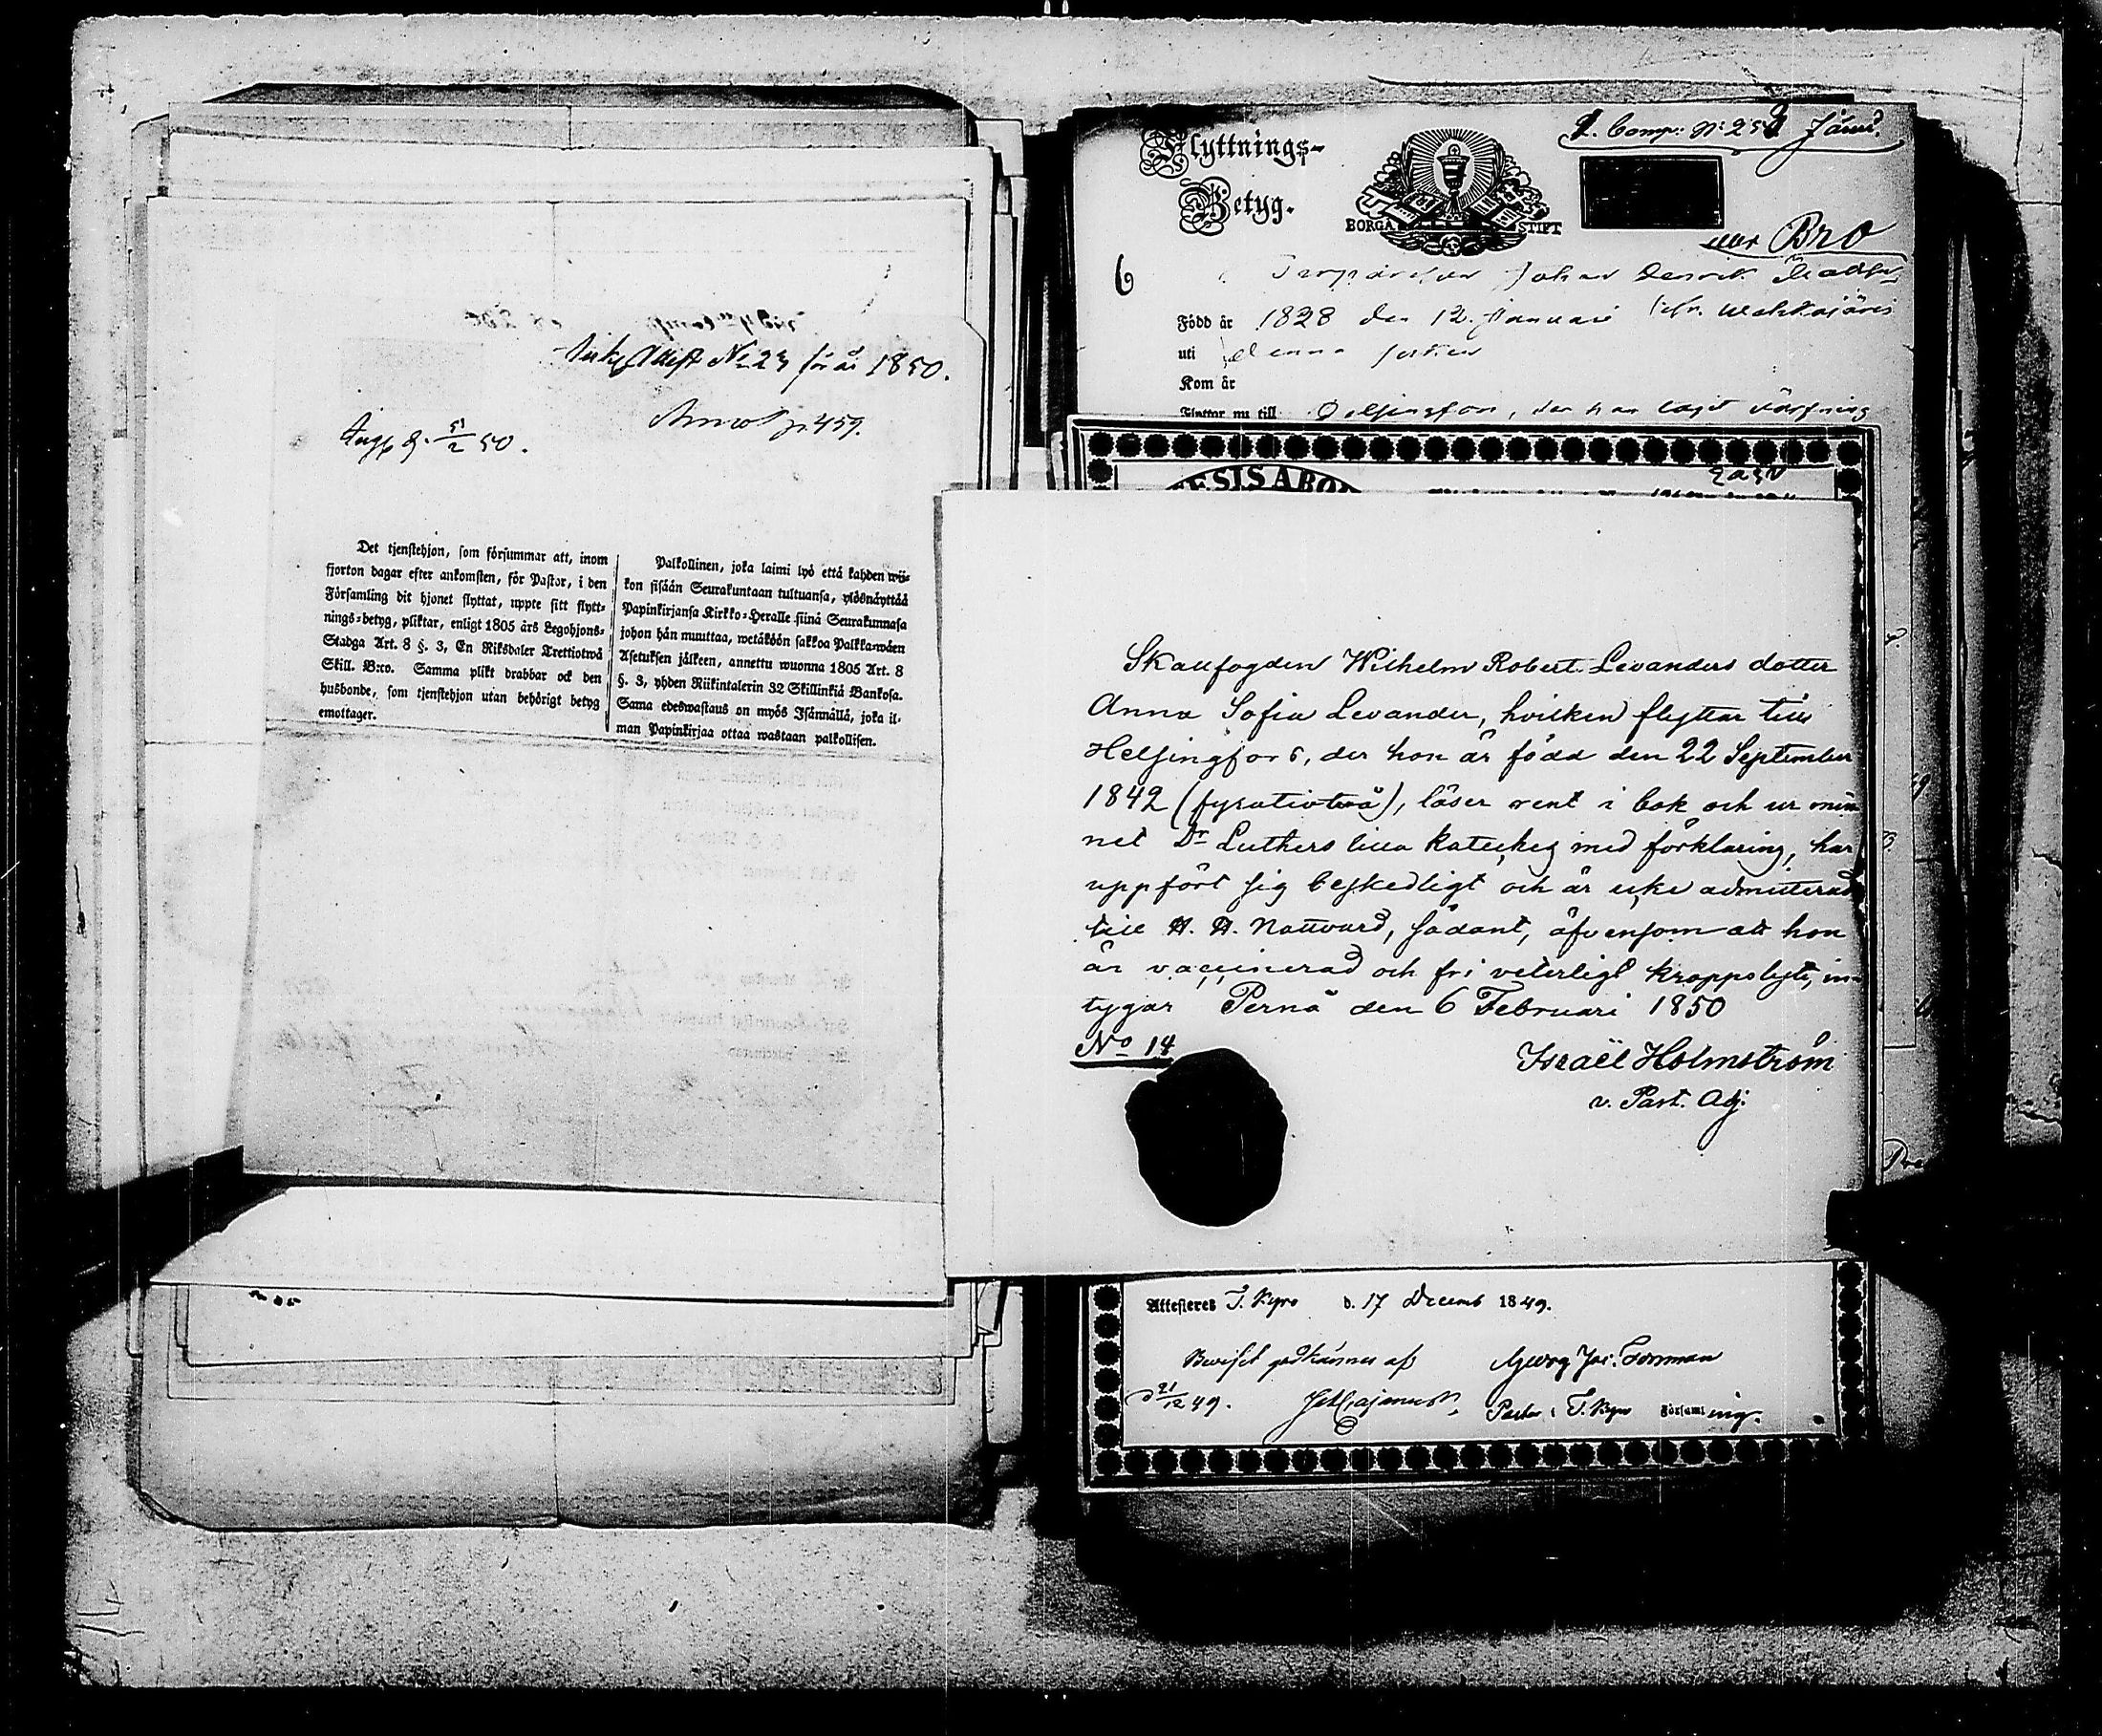 Attest No 23 för år 1850.
p. 459.
50.
Det tjenstehjon, som försummar att, inom
fjorton dagar efter ankomsten, för Pastor, i den
Församling dit hjonet flyttat, uppte sitt flytt-
nings-betyg, pliktar, enligt 1805 års Legohjons-
Stadga Art. 8 §. 3, En Riksdaler Trettiotwå
Skill. B:co. Samma plikt drabbar ock den
husbonde, som tjenstehjon utan behörigt betyg
emottager.
Palkollinen, joka laimi lyö että kahden wii-
kon sisään Seurakuntaan tultuansa, ylösnäyttää
Papinkirjansa Kirkko-Heralle siinä Seurakunnasa
johon hän muuttaa, wetäköön sakkoa Palkkawäen
Asetuksen jälkeen, annettu wuonna 1805 Art. 8
§. 3, yhden Riikintalerin 32 Skillinkiä Bankosa.
Sama edeswastaus on myös Isännällä, joka il-
man Papinkirjaa ottaa wastaan palkollisen.
Flyttnings-
Betyg.
BORGÅ STIFT
Bro
6
Johan Henrik
Född år 1828 den 12. Januari
uti denna socken
Kom år
Flyttar nu till Helsingfors, der han tagit värfning
ESIS ABO
Skaufogden Wilhelm Robert Levanders dotter
Anna Sofia Levander, hvilken flyttar till
Helsingfors, der hon är född den 22 September
1842 (fyratiotvå), läser rent i bok och ur min
net Dr Luthers lilla kateches med förklaring, har
uppfört sig beskedligt och är icke admitterad
till H. H. Nattvard, sådant, äfvensom att hon
är vaccinerad och fri veterligt kroppslyte, in-
tygar Pernå den 6 Februari 1850
No 14
Israël Holmström
v. Past. Adj.
Attesteres T. Kyro d. 17 Decemb 1849.
Beviset godkännes af Georg Jac. Forsman
d 21/12 49. Pastor i T. Kyro Församling.